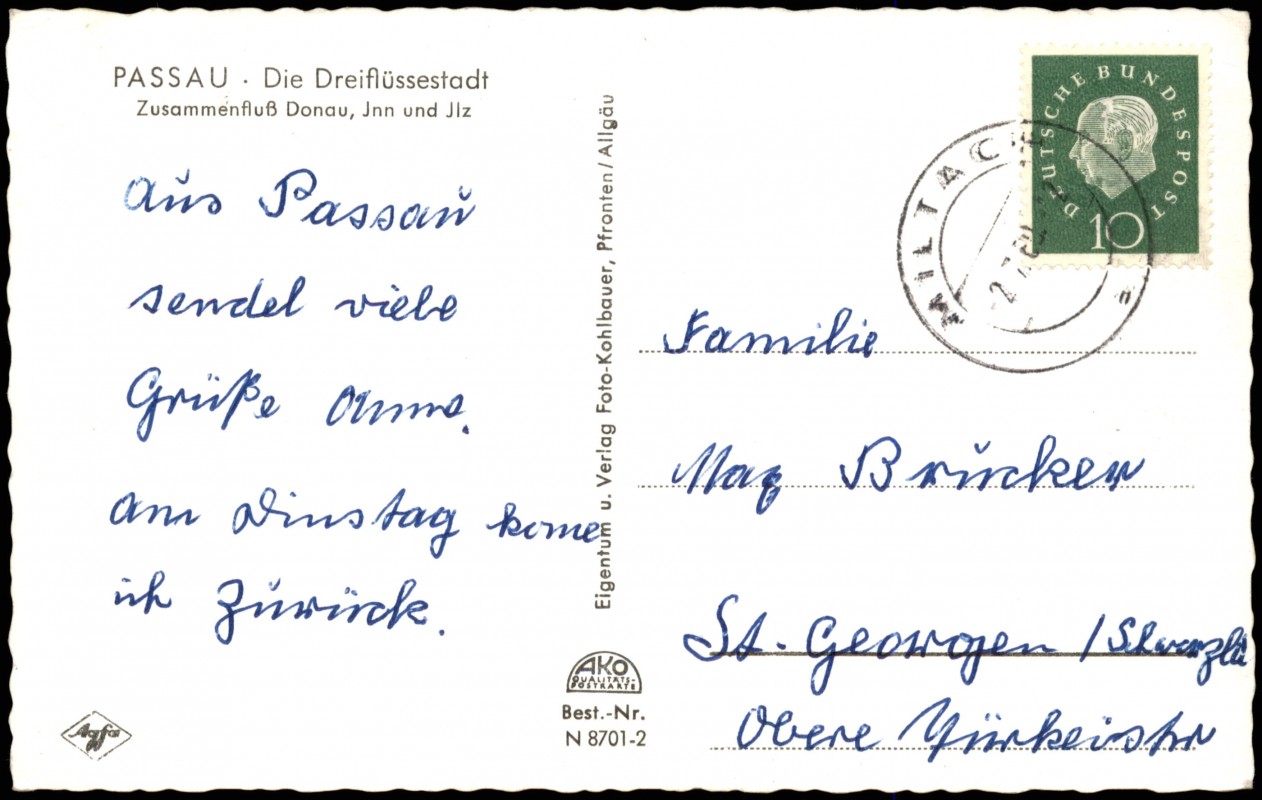 PASSAU · Die Dreiflüssestadt
Zusammenfluß Donau, Jnn und Jlz
Aus Passau
sendel viele
Grüße Anna.
Am Dinstag kome
ich Zurück.
Eigentum u. Verlag Foto-Kohlbauer, Pfronten/Allgäu
AKO
QUALITÄTS-
POSTKARTE
Best.-Nr.
N 8701-2
Agfa
DEUTSCHE BUNDESPOST
10
MILTACH
Familie
Max Brücker
St. Georgen /
Obere